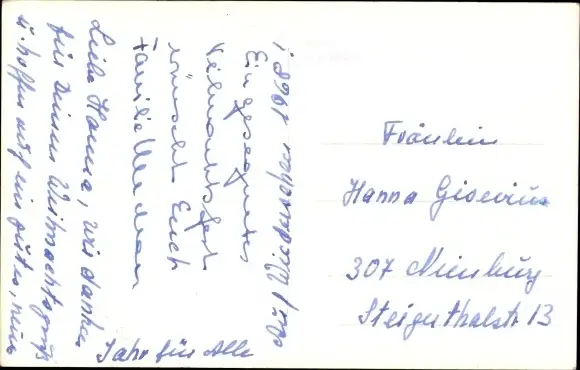 Auf Wiedersehen 1968!
Ein gesegnetes
Weihnachtsfest
wünscht Euch
Familie
Liebe Hanna, wir danken
für Deinen Weihnachtsgruß
u. hoffen auf ein gutes, neues
Jahr für Alle
Fräulein
Hanna Gisevius
307 Nienburg
Steigerthalstr 13